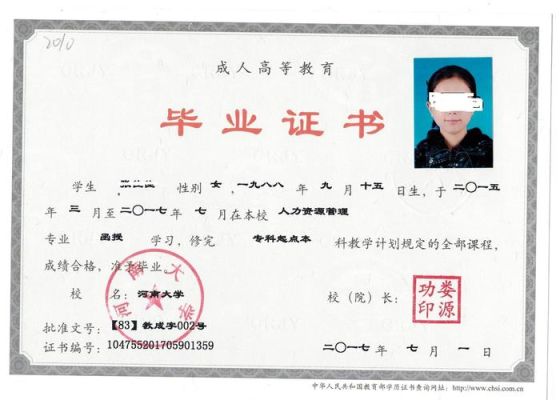 2010
成人高等教育
毕业证书
学生 性别 女,一九八八年 九 月 十五 日生,于 二〇一五
年 三 月至 二〇一七 年 七 月在本校 人力资源管理
专业 函授 学习,修完 专科起点本 科教学计划规定的全部课程,
成绩合格,准予毕业。
校 名: 河南大学
河南大学
校(院)长:
娄源功印
批准文号:【83】教成字002号
证书编号: 104755201705901359
二〇一七年 七月 一日
中华人民共和国教育部学历证书查询网址: http://www.chsi.com.cn